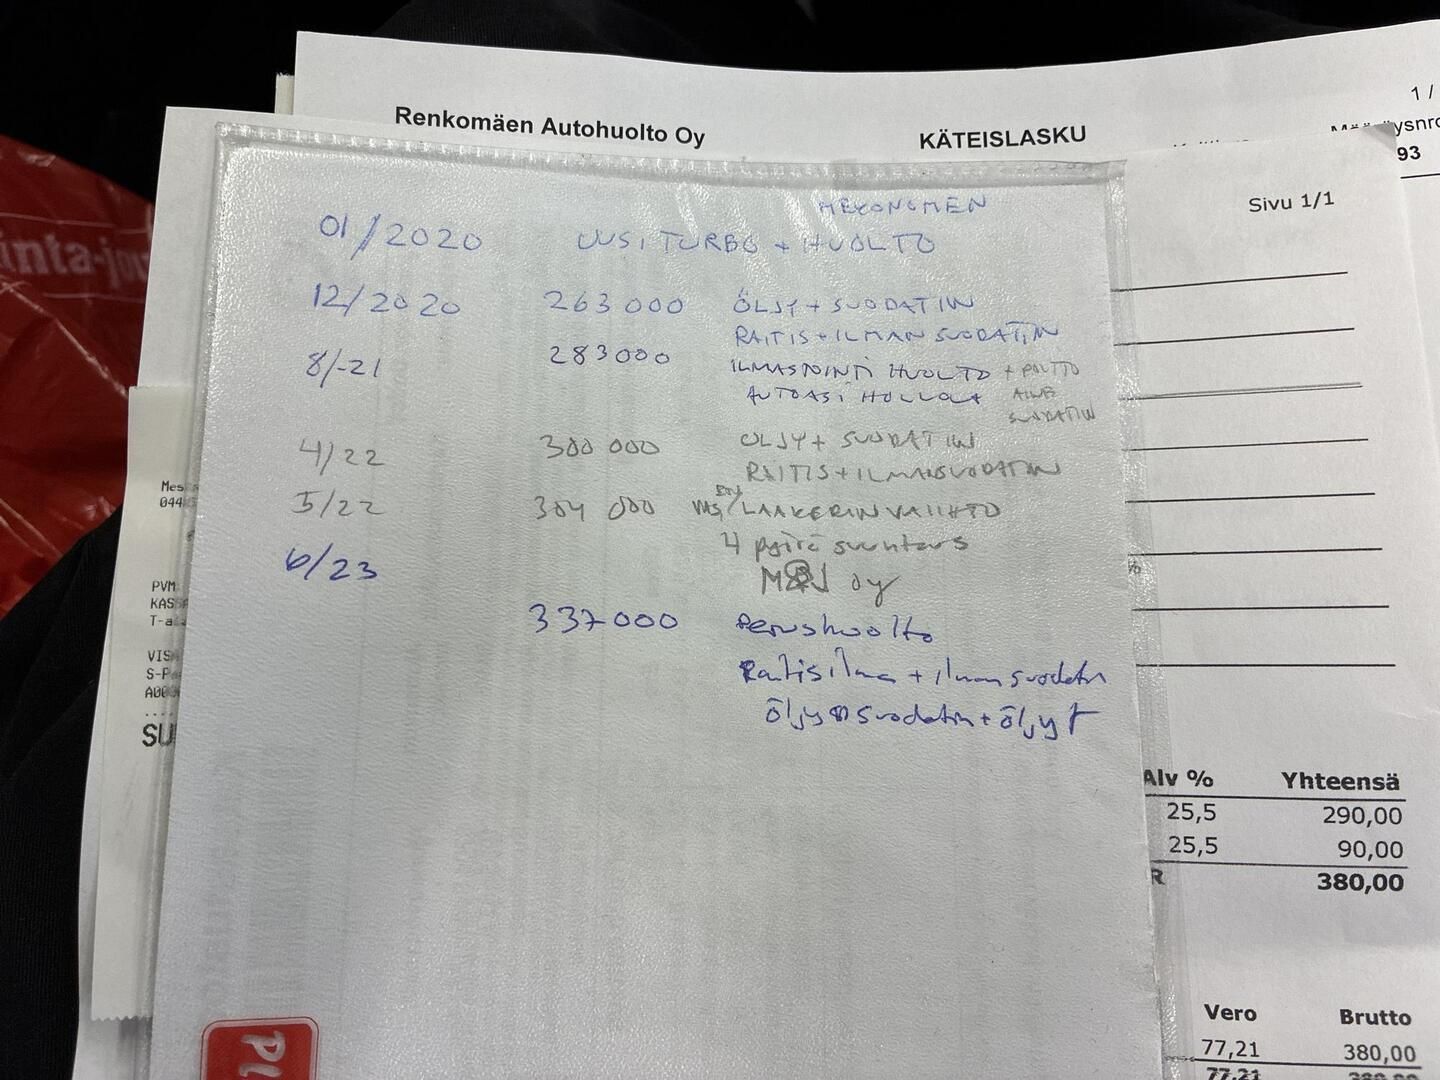 1 /
Renkomäen Autohuolto Oy
KÄTEISLASKU
93
Sivu 1/1
MEKONOMEN
01/2020 UUSI TURBO + HUOLTO
12/2020 263 000 ÖLJY + SUODATIN
RAITIS + ILMAN SUODATIN
8/-21 283000 ILMASTOINTI HUOLTO + POLTTO
AUTOASI HOLLOLA AINE
SUODATIN
4/22 300 000 ÖLJY + SUODATIN
RAITIS + ILMANSUODATIN
5/22 304 000 LAAKERIN VAIHTO
4 pyörä suuntaus
oy
6/23
337000 Perushuolto
Raitisilma + ilman suodatin
öljyn suodatin + öljyt
inta-jou
Mes
044
PVM
KAS
T-a
VIS
S-P
A00
SU
Alv % Yhteensä
25,5 290,00
25,5 90,00
R 380,00
Vero Brutto
77,21 380,00
77,21 380,00